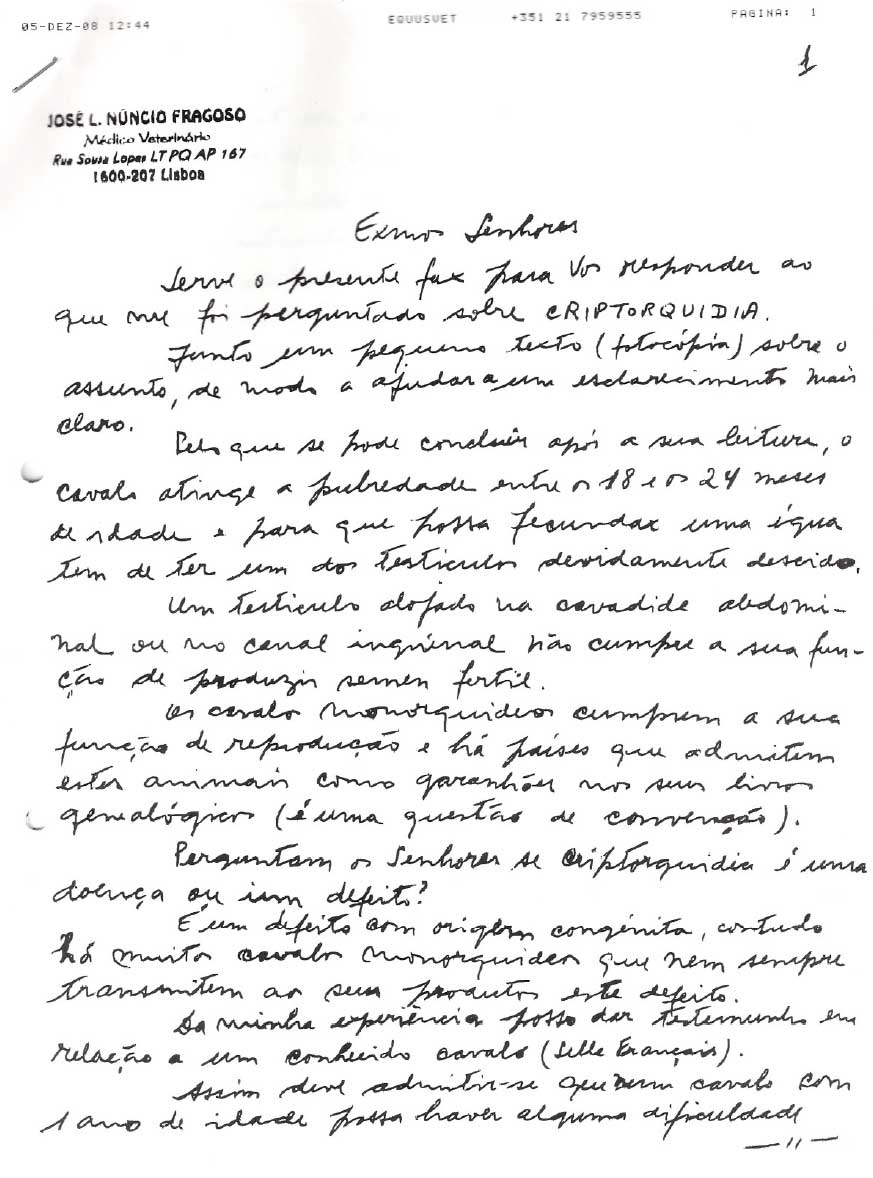 05-DEZ-08 12:44 EQUUSVET +351 21 7959555 PAGINA: 1
1
JOSÉ L. NÚNCIO FRAGOSO
Médico Veterinário
Rua Sousa Lopes LT PQ AP 167
1600-207 Lisboa
Exmos Senhores
Serve o presente fax para Vos responder ao
que me foi perguntado sobre CRIPTORQUIDIA.
Junto um pequeno texto (fotocópia) sobre o
assunto, de modo a ajudar a um esclarecimento mais
claro.
Pelo que se pode concluir após a sua leitura, o
cavalo atinge a pubredade entre os 18 e os 24 meses
de idade e para que possa fecundar uma égua
tem de ter um dos testiculos devidamente descido.
Um testiculo alojado na cavadide abdomi-
nal ou no canal ingüinal não cumpre a sua fun-
ção de produzir semen fertil.
Os cavalos monorquideos cumprem a sua
função de reprodução e há países que admitem
estes animais como garanhões nos seus livros
genealógicos (é uma questão de convenção).
Perguntam os Senhores se criptorquidia é uma
doença ou um defeito?
É um defeito com origem congénita, contudo
há muitos cavalos monorquideos que nem sempre
transmitem aos seus produtos este defeito.
Da minha experiência posso dar testemunho em
relação a um conhecido cavalo (Selle Français).
Assim deve admitir-se que num cavalo com
1 ano de idade possa haver alguma dificuldade
— 11 —